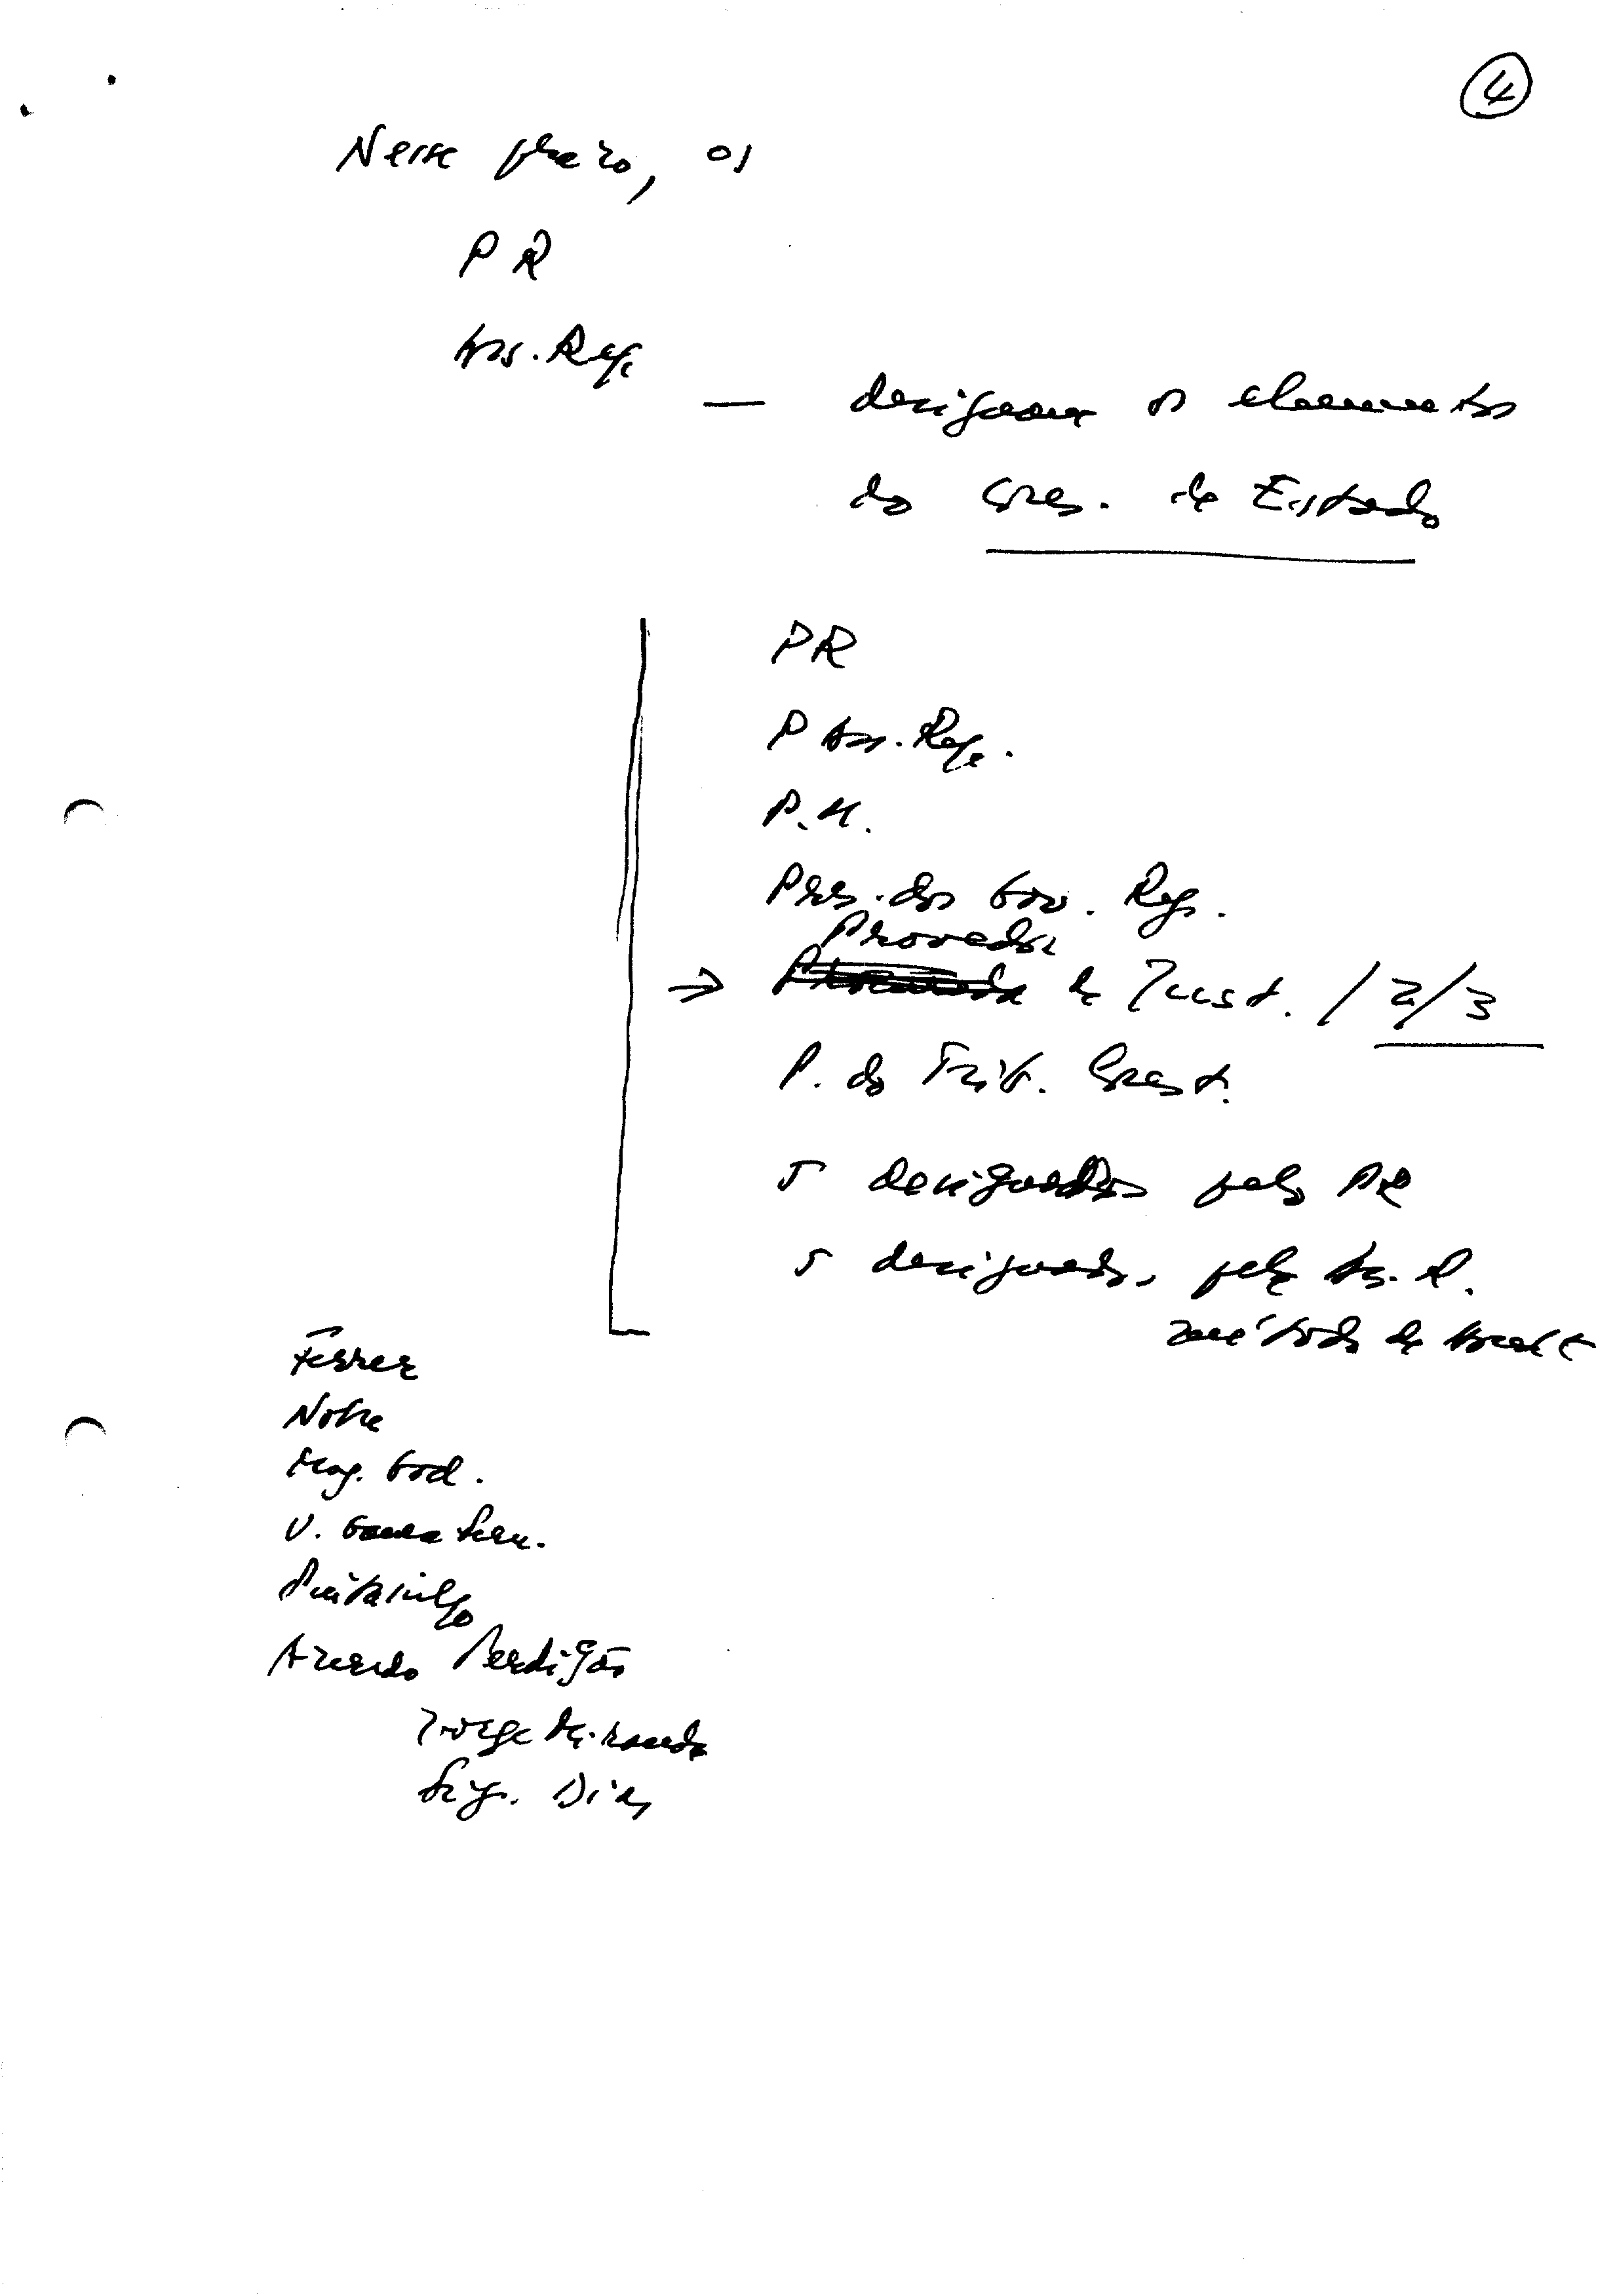 4
Nesse prazo, os
PR
Ass. Rep.
— designam os elementos
do Cons. de Estado
PR
P Ass. Rep.
P.M.
Pres. dos Gov. Reg.
Provedor
→ de Just. / 2/3
P. do Trib. Const.
5 designados pelo PR
5 designados pela As. R.
método de Hondt
Ferrer
Nobre
Mag. God.
V. Gama Fern.
Pintasilgo
Azeredo Perdigão
Jorge Miranda
Dias